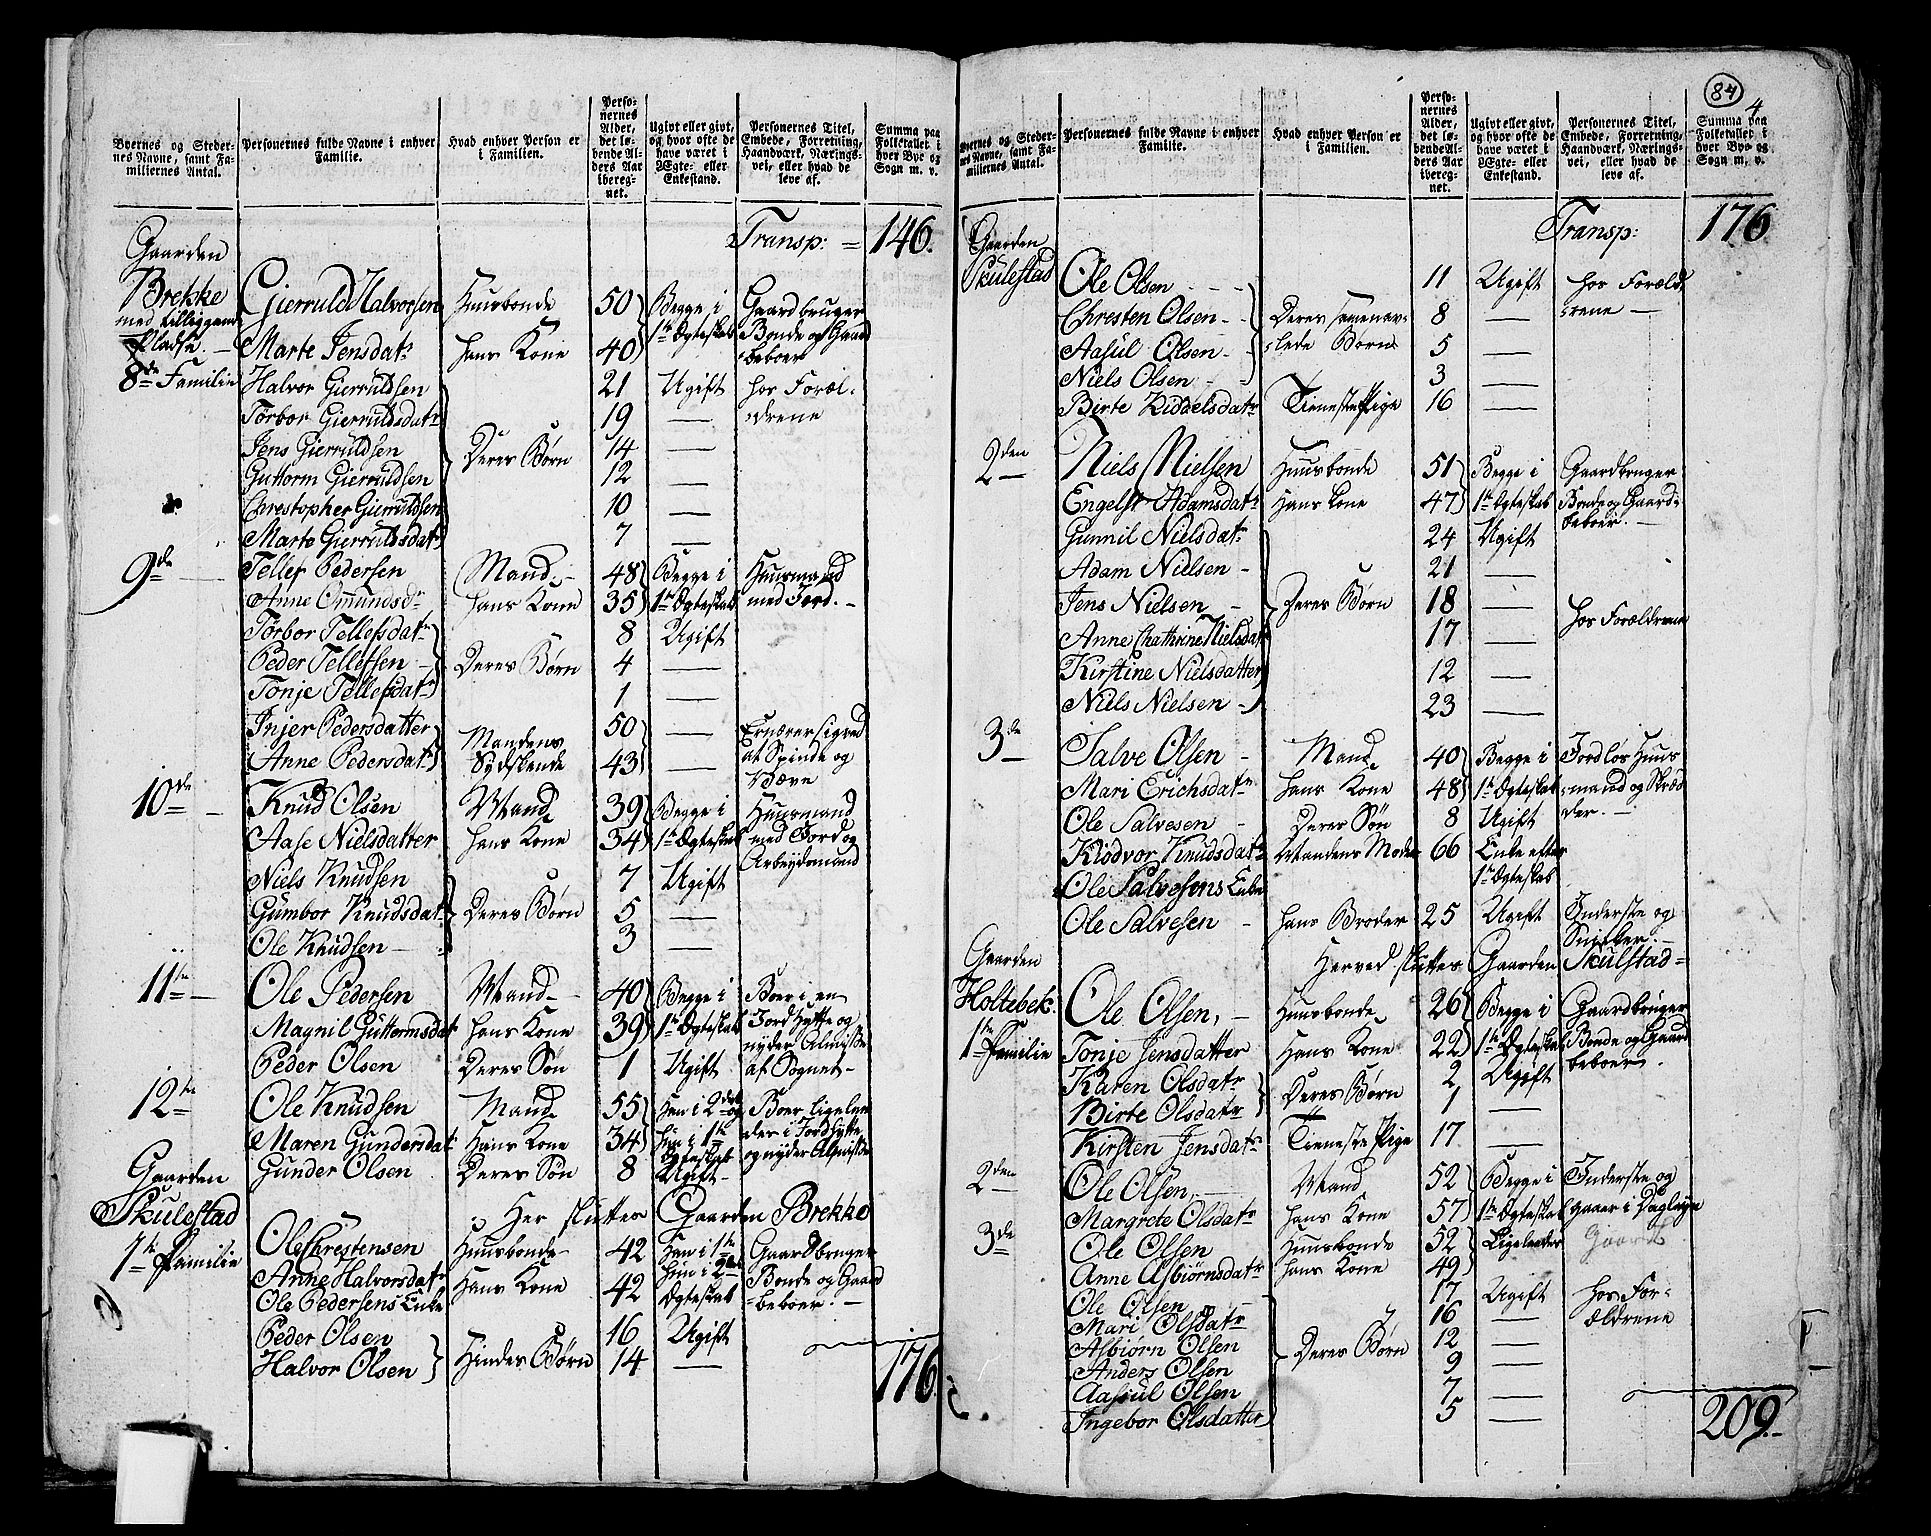 Byernes og Stedernes Navne, samt Familiernes Antal. | Personernes fulde Navne i enhver Familie. | Hvad enhver Person er i Familien. | Personernes Alder, det løbende Alders Aar iberegnet. | Ugivt eller givt, og hvor ofte de have været i Ægte- eller Enkestand. | Personernes Titel, Embede, Forretning, Haandværk, Næringsvei, eller hvad de leve af. | Summa paa Folketallet i hver Bye og Sogn m. v.
Transp: = 146.
Gaarden
Brekke Gierruld Halvorsen Huusbonde 50 Begge i Gaardbruger
med tilliggende 1te Ægteskab Bonde og Gaard
Pladse. Marte Jensdatr hans Kone 40 beboer
8de Familie Halvor Gierruldsen 21 Ugift hos Foræl-
Torbor Gierruldsdatr 19 — drene
Jens Gierruldsen Deres Børn 14 —
Guttorm Gierruldsen 12 —
Chrestopher Gierruldsen 10 —
Marte Gierruldsdatr 7 —
9de Tellef Pedersen Mand 48 Begge i Huusmand
Anne Omundsdr hans Kone 35 1te Ægteskab med Jord.
Torbor Tellefsdatr 8 Ugift
Peder Tellefsen Deres Børn 4 —
Tonje Tellefsdatr 1 —
Injer Pedersdatter Mandens 50 — Ernærer sig ved
Anne Pedersdatr Sydskende 43 — at Spinde og
Væve
10de Knud Olsen Mand 39 Begge i Huusmand
Aase Nielsdatter hans Kone 34 1te Ægteskab med Jord og
Niels Knudsen 7 Ugift Arbeydsmand
Gumbor Knudsdatr Deres Børn 5 —
Ole Knudsen 3 —
11te Ole Pedersen Mand 40 Begge i Boer i en
Magnil Guttormsdatr hans Kone 39 1te Ægteskab Jord Hytte og
Peder Olsen Deres Søn 1 Ugift nyder Almisse
af Sognet
12te Ole Knudsen Mand 55 Han i 2det og Boer ligele-
Maren Gundersdatr Hans Kone 34 hun i 1te des i Jordhytte
Ægteskab og nyder Almisse
Gunder Olsen Deres Søn 8 Ugift
Gaarden
Skulestad Her slutter Gaarden Brekke
1te Familie Ole Chrestensen Huusbonde 42 Han i 1te Gaardbruger
Anne Halvorsdatr Hans Kone 42 hun i 2det Bonde og Gaard
Ole Pedersens Enke Ægteskab beboer.
Peder Olsen 16 Ugift
Halvor Olsen Hindes Børn 14 —
176.
84
4
Byernes og Stedernes Navne, samt Familiernes Antal. | Personernes fulde Navne i enhver Familie. | Hvad enhver Person er i Familien. | Personernes Alder, det løbende Alders Aar iberegnet. | Ugivt eller givt, og hvor ofte de have været i Ægte- eller Enkestand. | Personernes Titel, Embede, Forretning, Haandværk, Næringsvei, eller hvad de leve af. | Summa paa Folketallet i hver Bye og Sogn m. v.
Transp: 176
Gaarden
Skulestad Ole Olsen 11 Ugift hos Foræld
Chresten Olsen Deres sammenav- 8 — rene
Aasul Olsen lede Børn 5 —
Niels Olsen 3 —
Birte Kiddelsdatr Tieneste Pige 16 —
2den Niels Nielsen Huusbonde 51 Begge i Gaardbruger
Engelst Adamsdatr Hans Kone 47 1te Ægteskab Bonde og Gaard-
Gunnil Nielsdatr 24 Ugift beboer.
Adam Nielsen 21 —
Jens Nielsen Deres Børn 18 — hos Forældrene
Anne Chathrine Nielsdatr 17 —
Kirstine Nielsdatter 12 —
Niels Nielsen 23 —
3de Salve Olsen Mand 40 Begge i Jordløs Huus
Mari Erichsdatr hans Kone 48 1te Ægteskab mand og Skræd
Ole Salvesen Deres Søn 8 Ugift der.
Kiödvor Knudsdatr Mandens Moder 66 Enke efter
Ole Salvesens Enke 1te Ægteskab
Ole Salvesen hans Broder 25 Ugift Inderste og
Snitker.
Gaarden Herved slutter Gaarden Skulstad
Holtebek Ole Olsen, Huusbonde 26 Begge i Gaardbruger
1te Familie Tonje Jensdatter Hans Kone 22 1te Ægteskab Bonde og Gaard
Karen Olsdatr Deres Børn 2 Ugift beboer.
Birte Olsdatr 1 —
Kirsten Jensdatr Tieneste Pige 17 —
2den Ole Olsen, Mand 52 Begge i Inderste og
Margrete Olsdatr hans Kone 57 1te Ægteskab gaaer i Dagleye
3de Ole Olsen Huusbonde 52 Ligeleedes Gaard
Anne Asbiørnsdatr hans Kone 49
Ole Olsen 17 Ugift hos For-
Mari Olsdatr 16 — ældrene
Asbiørn Olsen Deres Børn 12 —
Anders Olsen 9 —
Aasiul Olsen 7 —
Ingebor Olsdatter 5 —
209.